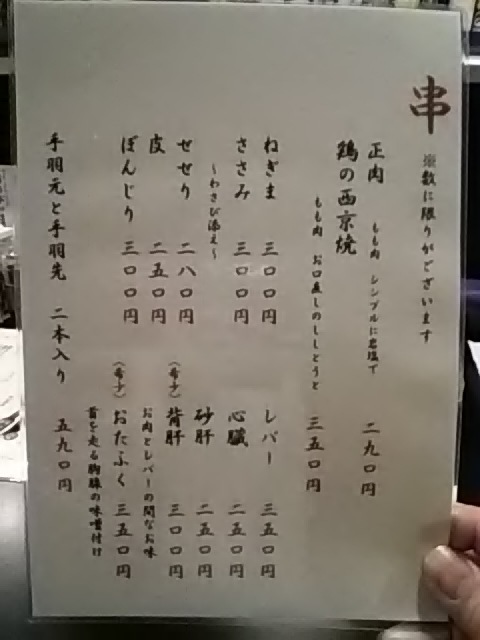 串
※数に限りがございます
正肉 もも肉 シンプルに岩塩で 二九〇円
鶏の西京焼 もも肉 お口直しのししとうと 三五〇円
ねぎま 三〇〇円
ささみ 三〇〇円
〜わさび添え〜
せせり 二八〇円
皮 二五〇円
ぼんじり 三〇〇円
レバー 三五〇円
心臓 二五〇円
砂肝 二五〇円
(希少) 背肝 三〇〇円
お肉とレバーの間なお味
(希少) おたふく 三五〇円
首を走る胸腺の味噌付け
手羽元と手羽先 二本入り 五九〇円